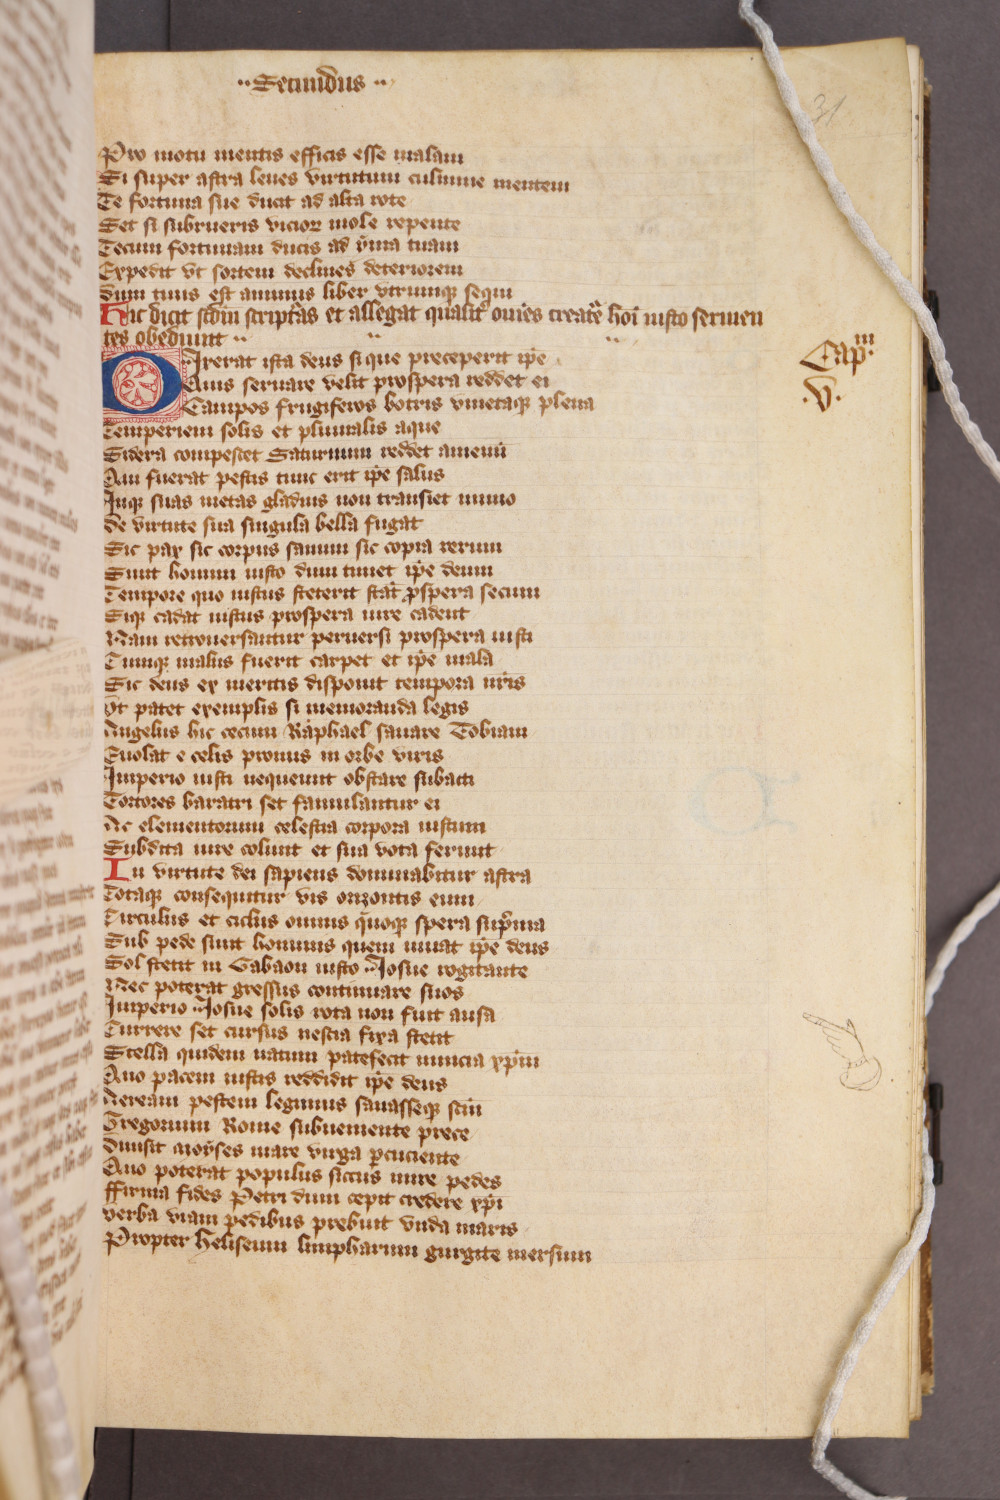 ·· Secundus ··
31
Pro motu mentis efficis esse malam
Si super astra leues virtutum culmine mentem
Te fortuna sue ducit ad alta rote
Set si subrueris vicior mole repente
Tecum fortunam ducis ad yma tuam
Expedit vt sortem declines deteriorem
Dum tuus est animus liber vtrumque sequi
Hic dicit scdm scriptas et allegat qualit omnes create hoi iusto seruien
tes obediunt ··
Cap m
·V·
Dixerat ista deus si que preceperit ipe
Quis seruare velit prospera reddet ei
Campos frugiferos botris vinetaque plena
Temperiem solis et pluuialis aque
Sidera compescet Saturnum reddet amenu
Qui fuerat pestis tunc erit ipe salus
Inque suas metas gladius non transiet immo
De virtute sua singula bella fugat
Sic pax sic corpus sanum sic copia rerum
Sunt homini iusto dum timet ipe deum
Tempore quo iustus steterit stat pspera secum
Sique cadat iustus prospera iure cadent
Nam retrouersantur peruersi prospera iusti
Cumque malus fuerit carpet et ipe mala
Sic deus ex meritis disponit tempora nris
Vt patet exemplis si memoranda legis
Angelus hic cecum Raphael sanare Tobiam
Euolat e celis pronus in orbe viris
Imperio iusti nequeunt obstare subacti
Tortores baratri set famulantur ei
Ac elementorum celestia corpora iustum
Subdita iure colunt et sua vota ferunt
In virtute dei sapiens dominabitur astra
Totaque consequitur vis orizontis eum
Circulus et ciclus omnis quoque spera suprma
Sub pede sunt hominis quem iuuat ipe deus
Sol stetit in Gabaon iusto Iosue rogitante
Nec poterat gressus continuare suos
Imperio Iosue solis rota non fuit ausa
Currere set cursus nescia fixa stetit
Stella quidem natum patefecit nuncia xpm
Quo pacem iustis reddidit ipe deus
Aeream pestem legimus sanasseque scm
Gregorium Rome subueniente prece
Diuisit moyses mare virga pcuciente
Quo poterat populus siccus inire pedes
ffirma fides Petri dum cepit credere xpi
verba viam pedibus prebuit vnda maris
Propter heliseum limpharum gurgite mersum